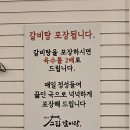 갈비탕 포장됩니다.
갈비탕을 포장하시면
육수를 2배로
드립니다.
매일 정성들여
끓인 국으로 넉넉하게
포장해 드립니다